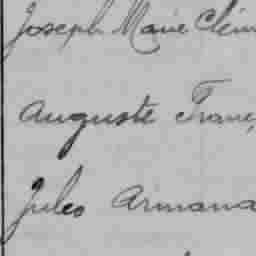 Joseph Marie Clém
Auguste Franç
Jules Armand